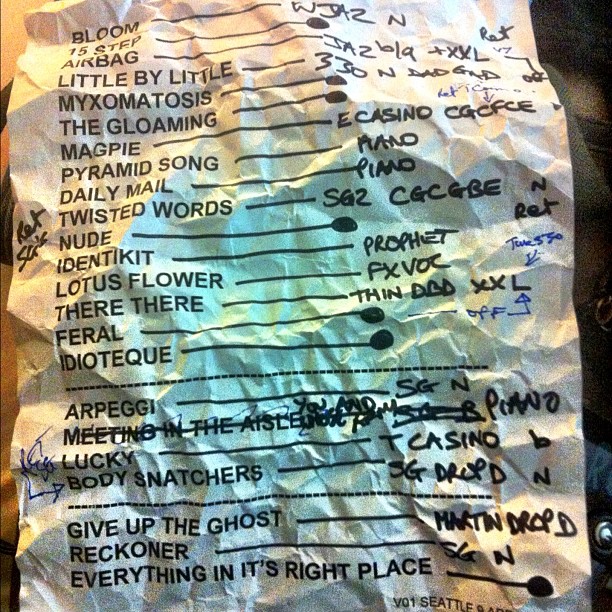 BLOOM WJAZ N
15 STEP
AIRBAG JAZ b/a +XXL Ret
LITTLE BY LITTLE 330 N DAD GAD off
MYXOMATOSIS
THE GLOAMING
MAGPIE E CASINO CGCFCE
PYRAMID SONG PIANO
DAILY MAIL PIANO
TWISTED WORDS SG2 CGCGBE N
NUDE Ret
IDENTIKIT PROPHET
LOTUS FLOWER FXVOC
THERE THERE THIN DBD XXL
FERAL OFF
IDIOTEQUE
ARPEGGI SG N
MEETING IN THE AISLE YOU AND SG B PIANO
LUCKY T CASINO b
BODY SNATCHERS SG DROP D N
GIVE UP THE GHOST MARTIN DROP D
RECKONER SG N
EVERYTHING IN IT'S RIGHT PLACE
V01 SEATTLE 9